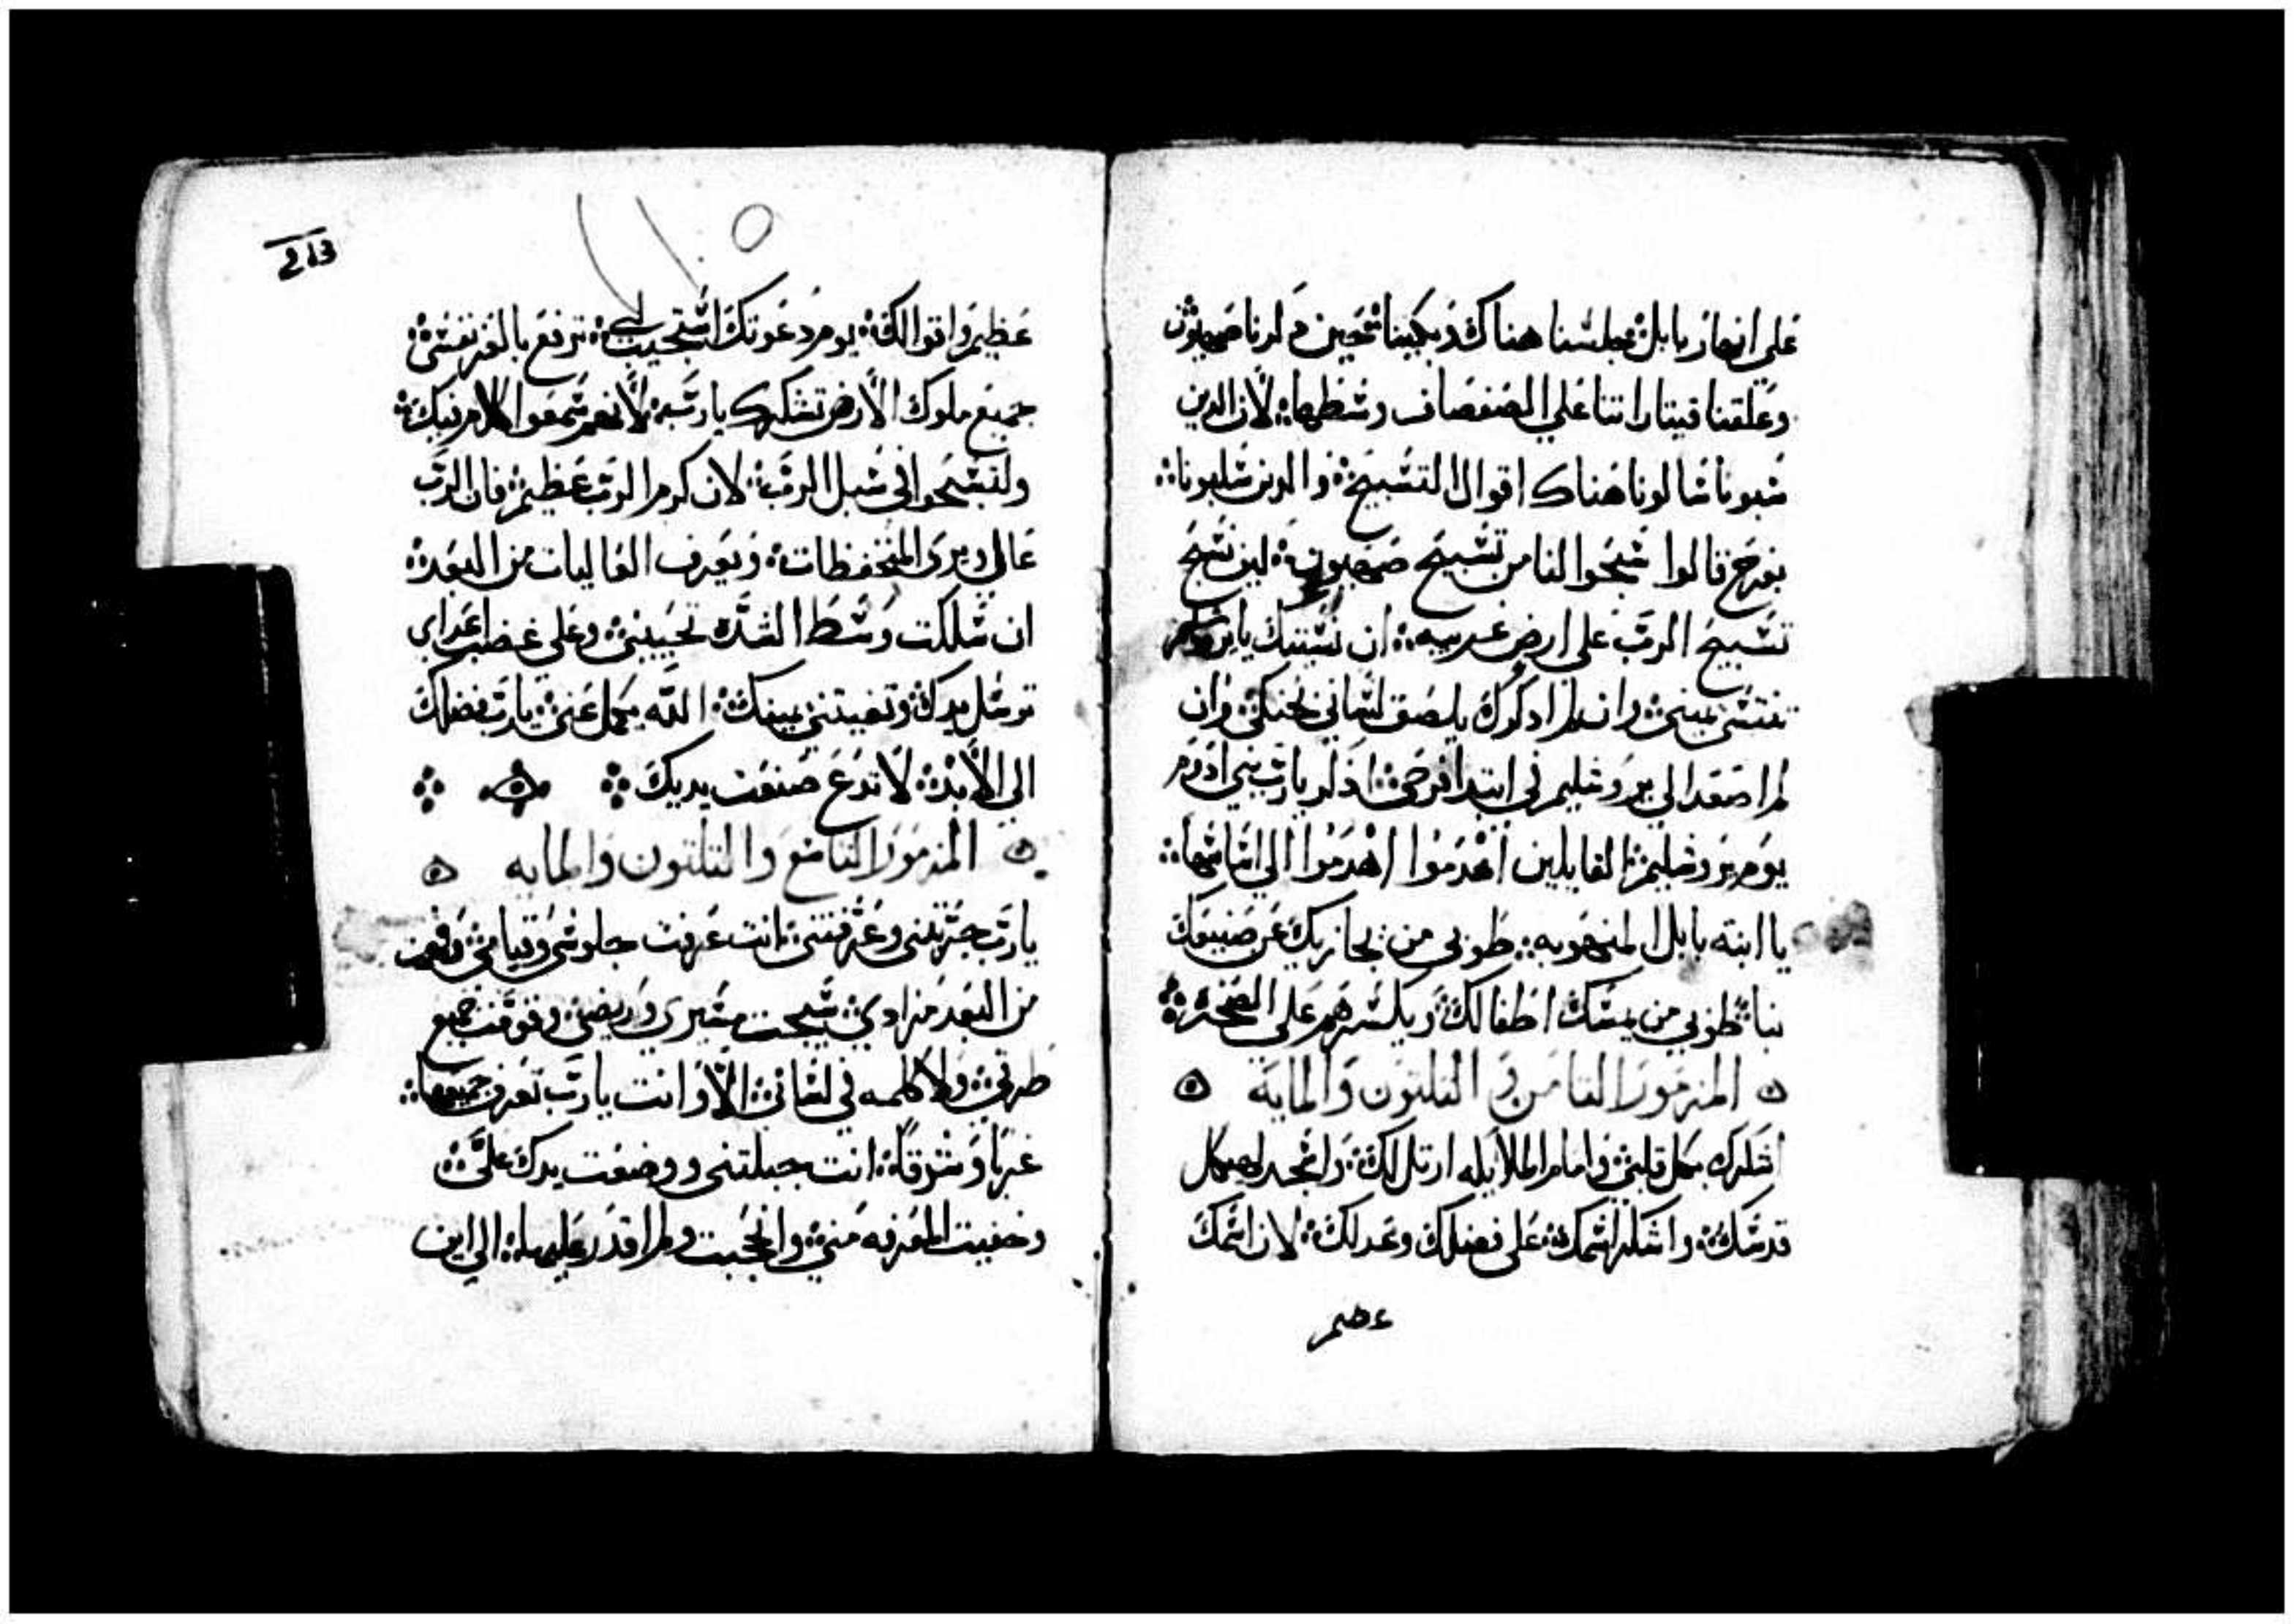 علي انهار بابل جلسنا هناك وبكينا حين دكرنا صهيون
وعلقنا قيتاراتنا علي الصفصاف وسطها لان الدين
سبونا سالونا هناك اقوال التسبيح والدين سلبونا
بفرح قالوا سبحوا لنا من تسبيح صهيون ليف نسبح
تسبيح الرب علي ارض غريبه ان نسيتك يا يروشليم
تنسني يميني وان لم ادكرك يلصق لساني بحنكي وان
لم اصعد الي يروشليم في ابتدا فرحي ادكر يا رب بني ادوم
يوم يروشليم القايلين اهدموا اهدموا الي اساسها
يا ابنه بابل المنهوبه طوبي من يجازيك عن صنيعك
بنا طوبي من يمسك اطفالك ويكسرهم علي الصخره
المزمور التامن و التلتون والمايه
اشكرك بكل قلبي وامام الملايكه ارتل لك واسجد لهيكل
قدسك واشكر اسمك علي فضلك وعدلك لان اسمك
عظيم
213
عظيم واقوالك يوم دعوتك استجيب لي ترفع بالعز نفسي
جميع ملوك الارض تشكرك يا رب لانهم سمعوا كلام فيك
وليسبحوا في سبل الرب لان كرم الرب عظيم فان الرب
عالي ويري المنخفظات ويعرف العاليات من البعد
ان سلكت وسط الشده تحييني وعلي غضب اعداي
ترسل يدك وتغيتني يمينك الله يكمل عني يا رب فضلك
الي الابد لا تدع صنعت يديك
المزمور التاسع والتلتون والمايه
يا رب جربتني وعرفتني انت عرفت جلوسي وقيامي وفهمت
من البعد مرادي سيجت مسيري وربضي وقومت جميع
طرقي ولا كلمه في لساني الا وانت يا رب تعرف جميعها
غربا وشرقا انت جبلتني ووضعت يدك علي
وخفيت المعرفه مني وانحجبت ولم اقدر عليها الي اين